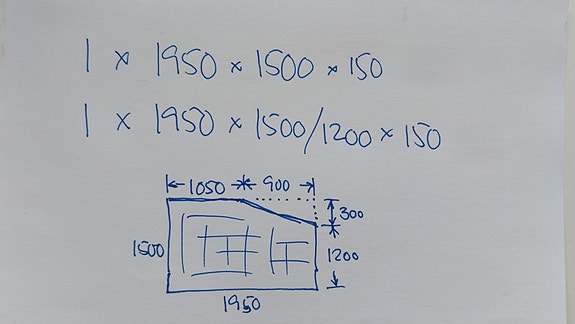 1 x 1950 x 1500 x 150
1 x 1950 x 1500/1200 x 150
1050 900
300
1500
1200
1950